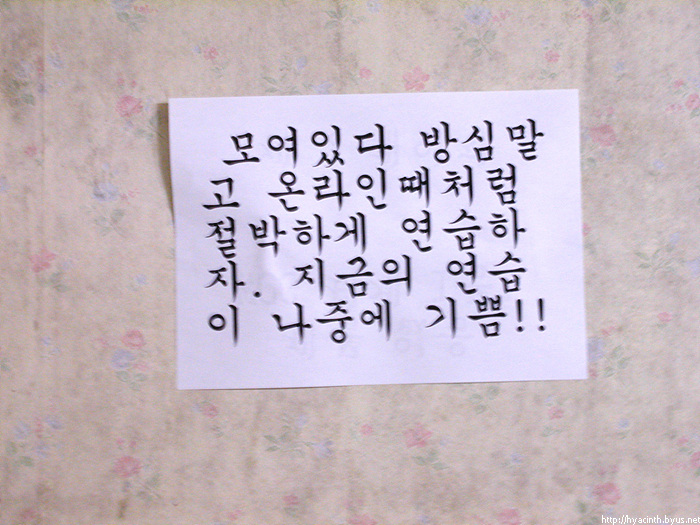 모여있다 방심말
고 온라인때처럼
절박하게 연습하
자. 지금의 연습
이 나중에 기쁨!!
http://hyacinth.byus.net